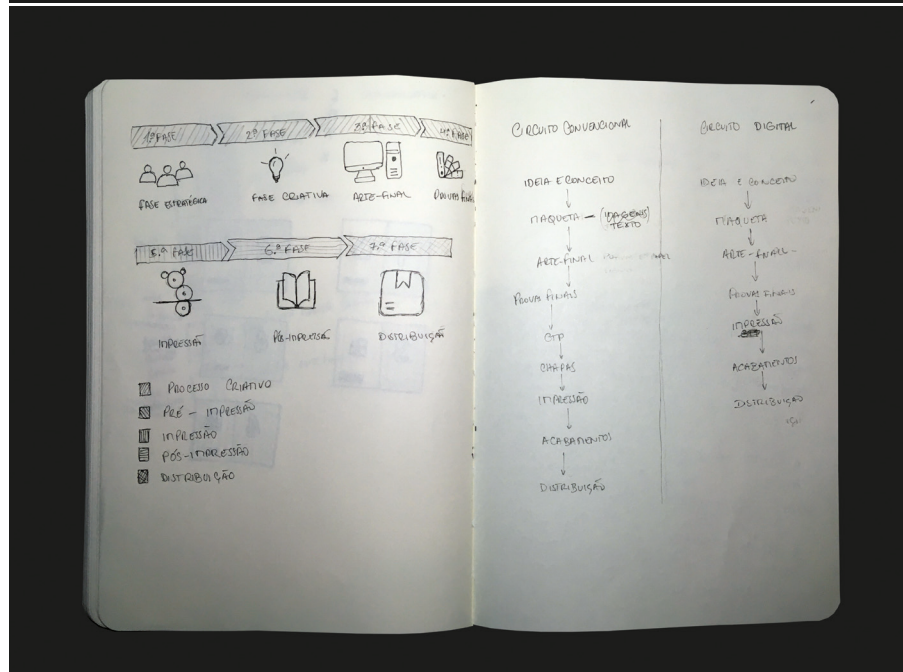 1.ª FASE
2.ª FASE
3.ª FASE
4.ª FASE
FASE ESTRATÉGICA
FASE CRIATIVA
ARTE-FINAL
PROVAS FINAIS
5.ª FASE
6.ª FASE
7.ª FASE
IMPRESSÃO
PÓS-IMPRESSÃO
DISTRIBUIÇÃO
PROCESSO CRIATIVO
PRÉ - IMPRESSÃO
IMPRESSÃO
PÓS-IMPRESSÃO
DISTRIBUIÇÃO
CIRCUITO CONVENCIONAL
IDEIA E CONCEITO
MAQUETA — (IMAGENS)
TEXTO
ARTE-FINAL
PROVAS FINAIS
CTP
CHAPAS
IMPRESSÃO
ACABAMENTOS
DISTRIBUIÇÃO
CIRCUITO DIGITAL
IDEIA E CONCEITO
MAQUETA
ARTE-FINAL
PROVAS FINAIS
IMPRESSÃO
ACABAMENTOS
DISTRIBUIÇÃO